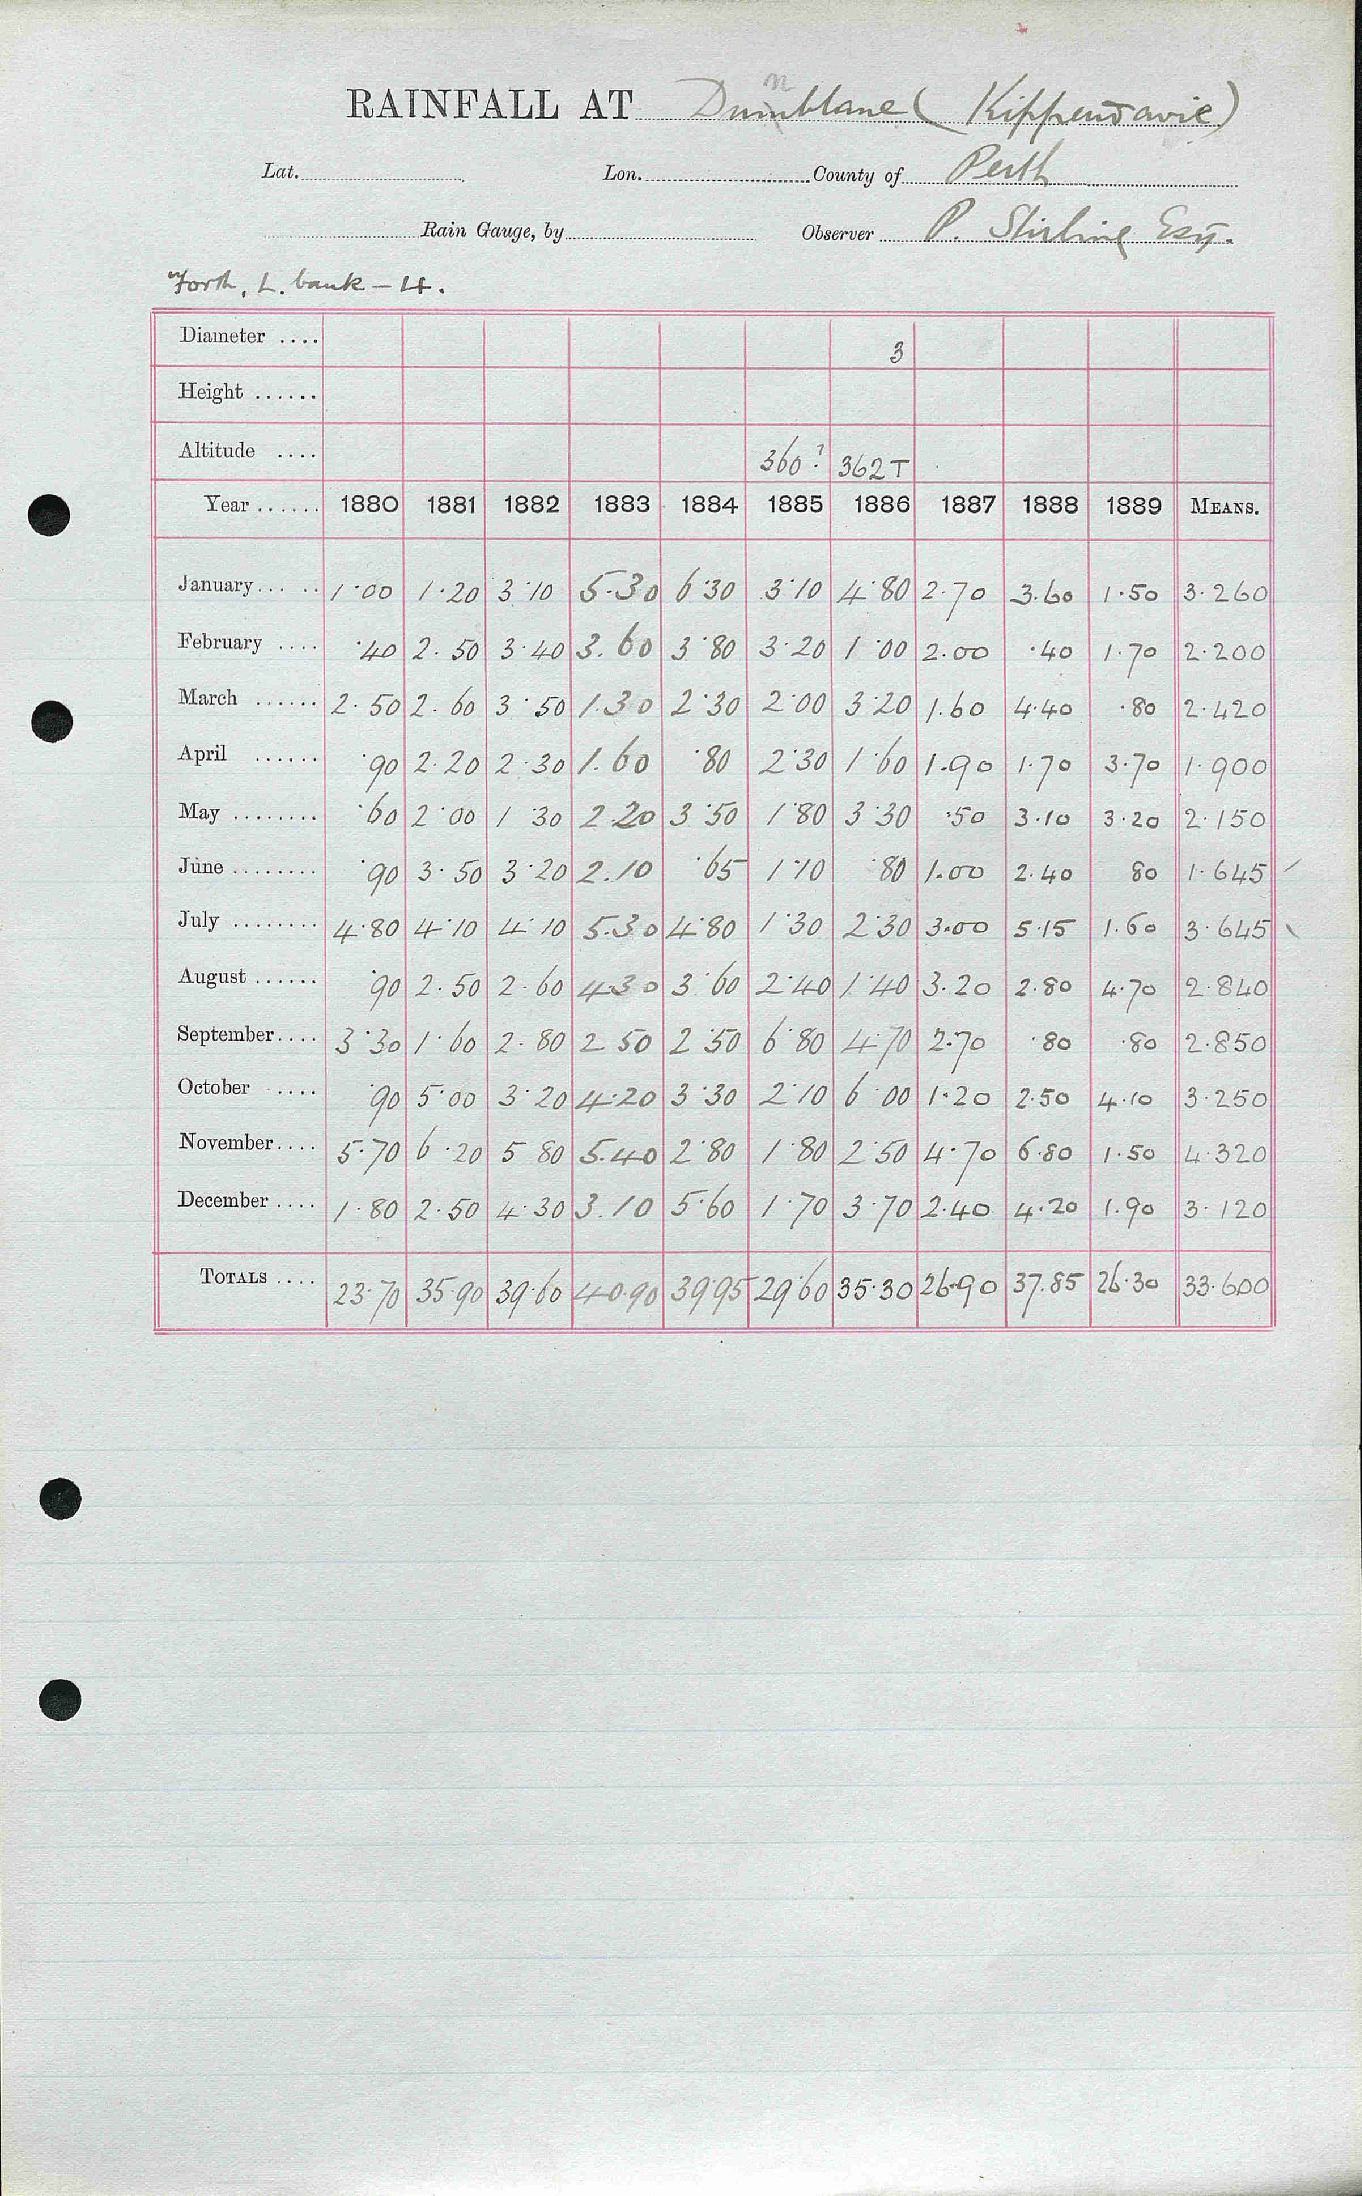 RAINFALL AT Dunblane (Kippendavie)
Lat. Lon. County of Perth
Rain Gauge, by Observer P. Stirling Esq.
Forth, L. bank - 4.
Diameter .... 3
Height ......
Altitude .... 360? 362T
Year ...... 1880 1881 1882 1883 1884 1885 1886 1887 1888 1889 MEANS.
January... .. 1·00 1·20 3·10 5·30 6·30 3·10 4·80 2·70 3·60 1·50 3·260
February .... ·40 2·50 3·40 3·60 3·80 3·20 1·00 2·00 ·40 1·70 2·200
March ...... 2·50 2·60 3·50 1·30 2·30 2·00 3·20 1·60 4·40 ·80 2·420
April ...... ·90 2·20 2·30 1·60 ·80 2·30 1·60 1·90 1·70 3·70 1·900
May ........ ·60 2·00 1·30 2·20 3·50 1·80 3·30 ·50 3·10 3·20 2·150
June ........ ·90 3·50 3·20 2·10 ·65 1·10 ·80 1·00 2·40 80 1·645
July ........ 4·80 4·10 4·10 5·30 4·80 1·30 2·30 3·00 5·15 1·60 3·645
August ...... ·90 2·50 2·60 4·30 3·60 2·40 1·40 3·20 2·80 4·70 2·840
September.... 3·30 1·60 2·80 2·50 2·50 6·80 4·70 2·70 ·80 ·80 2·850
October .... ·90 5·00 3·20 4·20 3·30 2·10 6·00 1·20 2·50 4·10 3·250
November.... 5·70 6·20 5·80 5·40 2·80 1·80 2·50 4·70 6·80 1·50 4·320
December .... 1·80 2·50 4·30 3·10 5·60 1·70 3·70 2·40 4·20 1·90 3·120
TOTALS .... 23·70 35·90 39·60 40·90 39·95 29·60 35·30 26·90 37·85 26·30 33·600